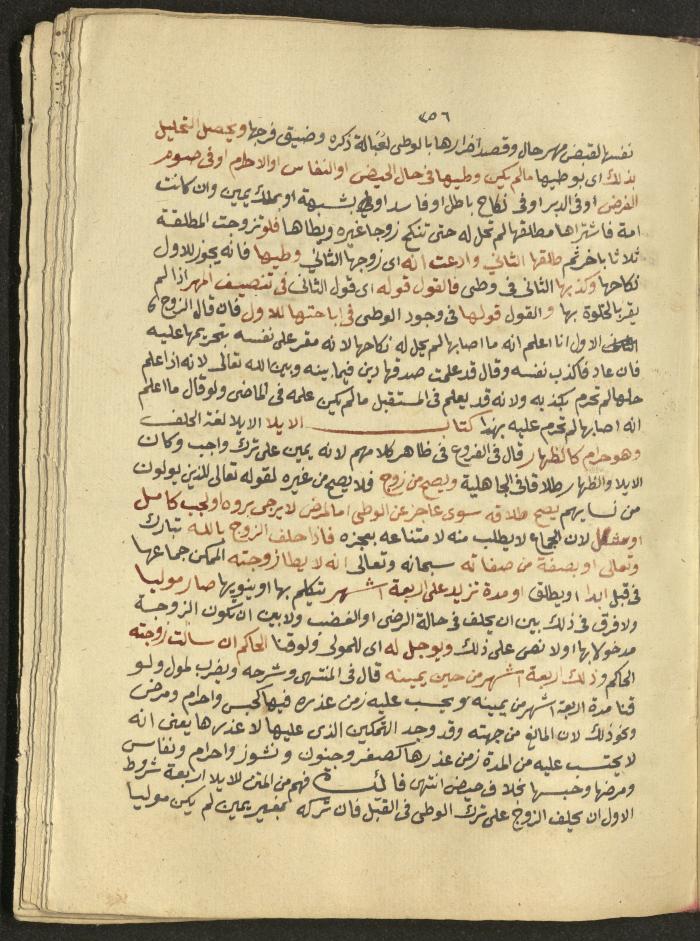 ٢٥٦
نفسها لقبض مهر حال وقصد اضرارها بالوطى لعبالة ذكره وضيق فرجها ويحصل التحليل
بذلك اى بوطيها مالم يكن وطيها فى حال الحيض او النفاس او الاحرام او فى صوم
الفرض او فى الدبر او فى نكاح باطل او فاسد او وطى بشبهة او بملك يمين وان كانت
امة فاشتراها مطلقها لم تحل له حتى تنكح زوجا غيره ويطاها فلو تزوجت المطلقة
ثلاثا باخر ثم طلقها الثانى وادعت انه اى زوجها الثانى وطيها فانه يجوز للاول
نكاحها وكذبها الثانى فى وطى فالقول قوله اى قول الثانى فى تنصيف المهر اذا لم
يقر بالخلوة بها والقول قولها فى وجود الوطى فى اباحتها للاول فان قال الزوج
الاول انا اعلم انه ما اصابها لم يحل له نكاحها لانه مقر على نفسه بتحريمها عليه
فان عاد فاكذب نفسه وقال قد علمت صدقها دين فيما بينه وبين الله تعالى لانه اذا علم
حلها لم تحرم بكذبه ولانه قد يعلم فى المستقبل مالم يكن علمه فى الماضى ولو قال ما اعلم
انه اصابها لم تحرم عليه بهذا كتاب الايلا الايلا لغة الحلف
وهو حرام كالظهار قال فى الفروع فى ظاهر كلامهم لانه يمين على ترك واجب وكان
الايلا والظهار طلاقا فى الجاهلية ويصح من زوج فلا يصح من غيره لقوله تعالى للذين يولون
من نسايهم يصح طلاقه سوى عاجز عن الوطى اما لمرض لا يرجى بروه او لجب كامل
او شلل لان الجماع لا يطلب منه لامتناعه بعجزه فاذا حلف الزوج بالله تبارك
وتعالى او بصفة من صفاته سبحانه وتعالى انه لا يطا زوجته الممكن جماعها
فى قبل ابدا او يطلق او مدة تزيد على اربعة اشهر يتكلم بها او ينويها صار موليا
ولا فرق فى ذلك بين ان يحلف فى حالة الرضى او الغضب ولا بين ان تكون الزوجة
مدخولا بها اولا نص على ذلك ويوجل له اى للمولى ولو قنا الحاكم ان سالت زوجته
الحاكم وذلك اربعة اشهر من حين يمينه قال فى المنتهى وشرحه ويضرب لمول ولو
قنا مدة اربعة اشهر من يمينه ويحسب عليه زمن عذره فيها كحبس واحرام ومرض
ونحو ذلك لان المانع من جهته وقد وجد التمكين الذى عليها لا عذرها يعنى انه
لا يحتسب عليه من المدة زمن عذرها كصغر وجنون ونشوز واحرام ونفاس
ومرضها وحبسها بخلاف حيض انتهى فائدة فهم من المتن للايلا اربعة شروط
الاول ان يحلف الزوج على ترك الوطى فى القبل فان تركه بغير يمين لم يكن موليا